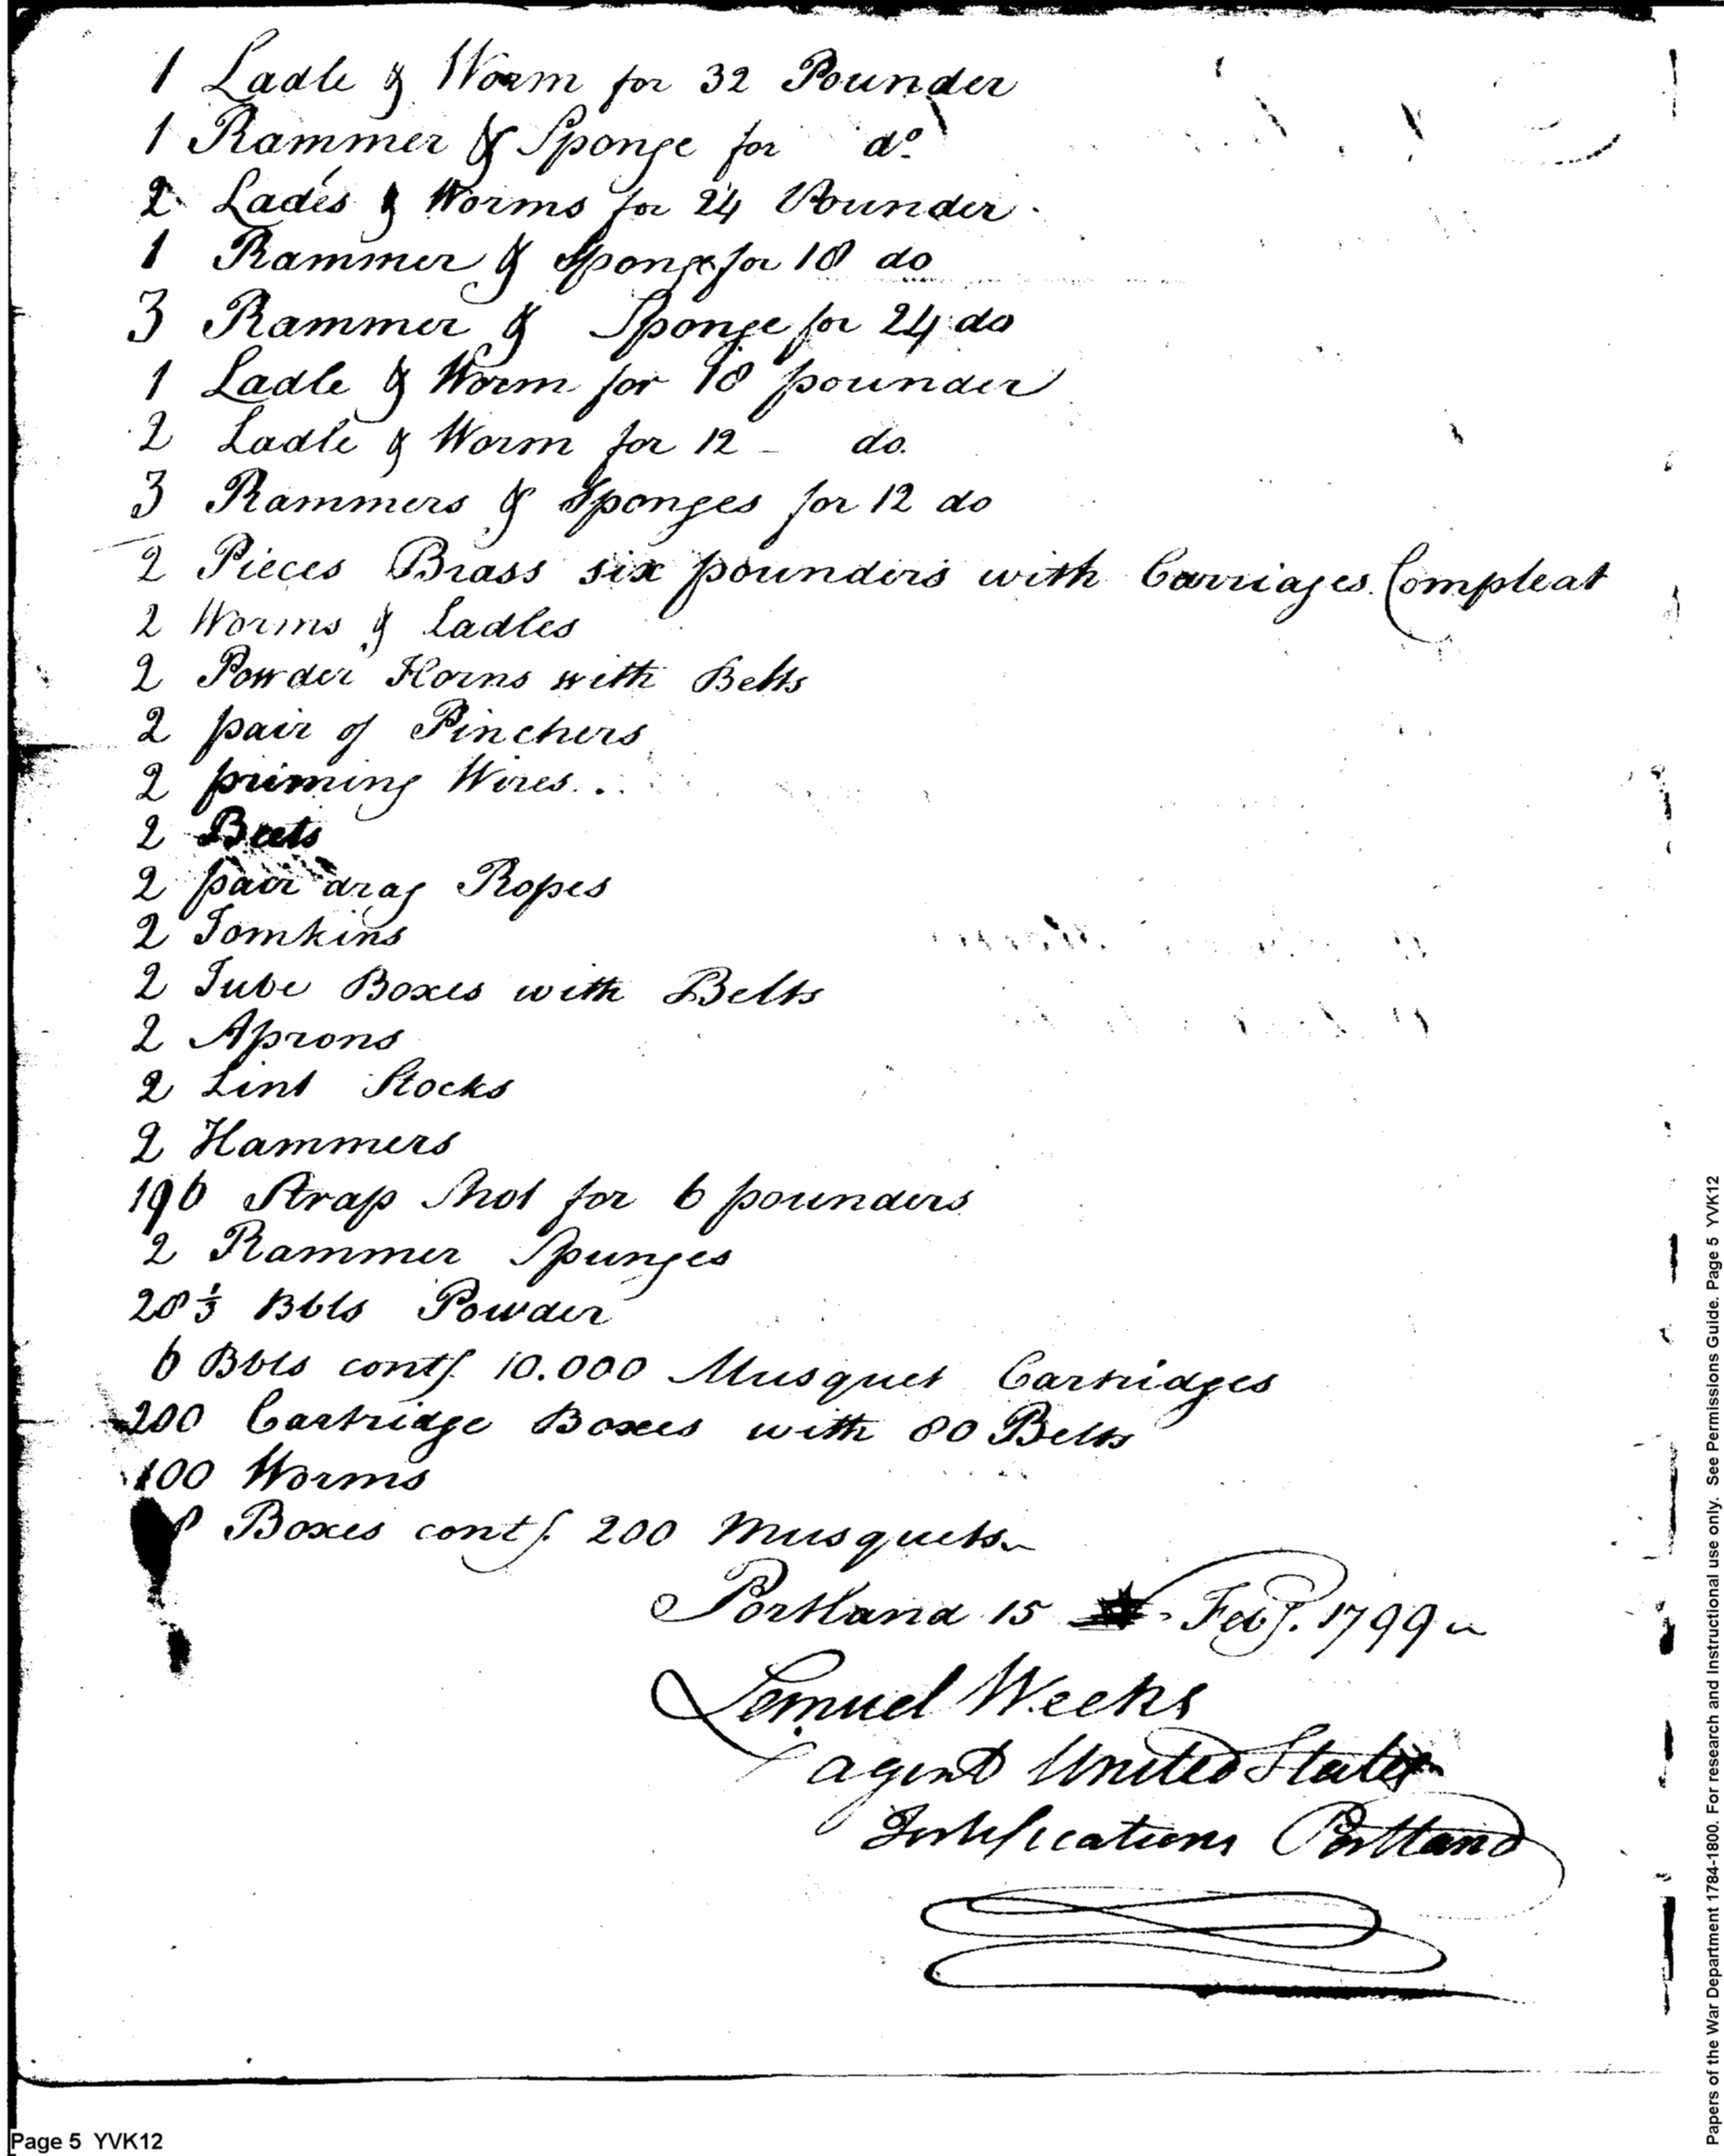 1 Ladle & Worm for 32 Pounder
1 Rammer & Sponge for do.
2 Lades & Worms for 24 Pounder
1 Rammer & Sponge for 18 do
3 Rammer & Sponge for 24 do
1 Ladle & Worm for 18 pounder
2 Ladle & Worm for 12 - do.
3 Rammers & Sponges for 12 do
2 Pieces Brass six pounders with Carriages Compleat
2 Worms & Ladles
2 Powder Horns with Belts
2 pair of Pinchers
2 priming Wires
2
2 pair drag Ropes
2 Tomkins
2 Tube Boxes with Belts
2 Aprons
2 Lint Stocks
2 Hammers
196 Strap Shot for 6 pounders
2 Rammer Spunges
28 1/3 Bbls Powder
6 Bbls contg. 10.000 Musquet Cartridges
200 Cartridge Boxes with 80 Belts
100 Worms
8 Boxes contg. 200 Musquets
Portland 15 Feby. 1799
Lemuel Weeks
agent United States
Fortifications Portland
Page 5 YVK12
Papers of the War Department 1784-1800. For research and Instructional use only. See Permissions Guide. Page 5 YVK12